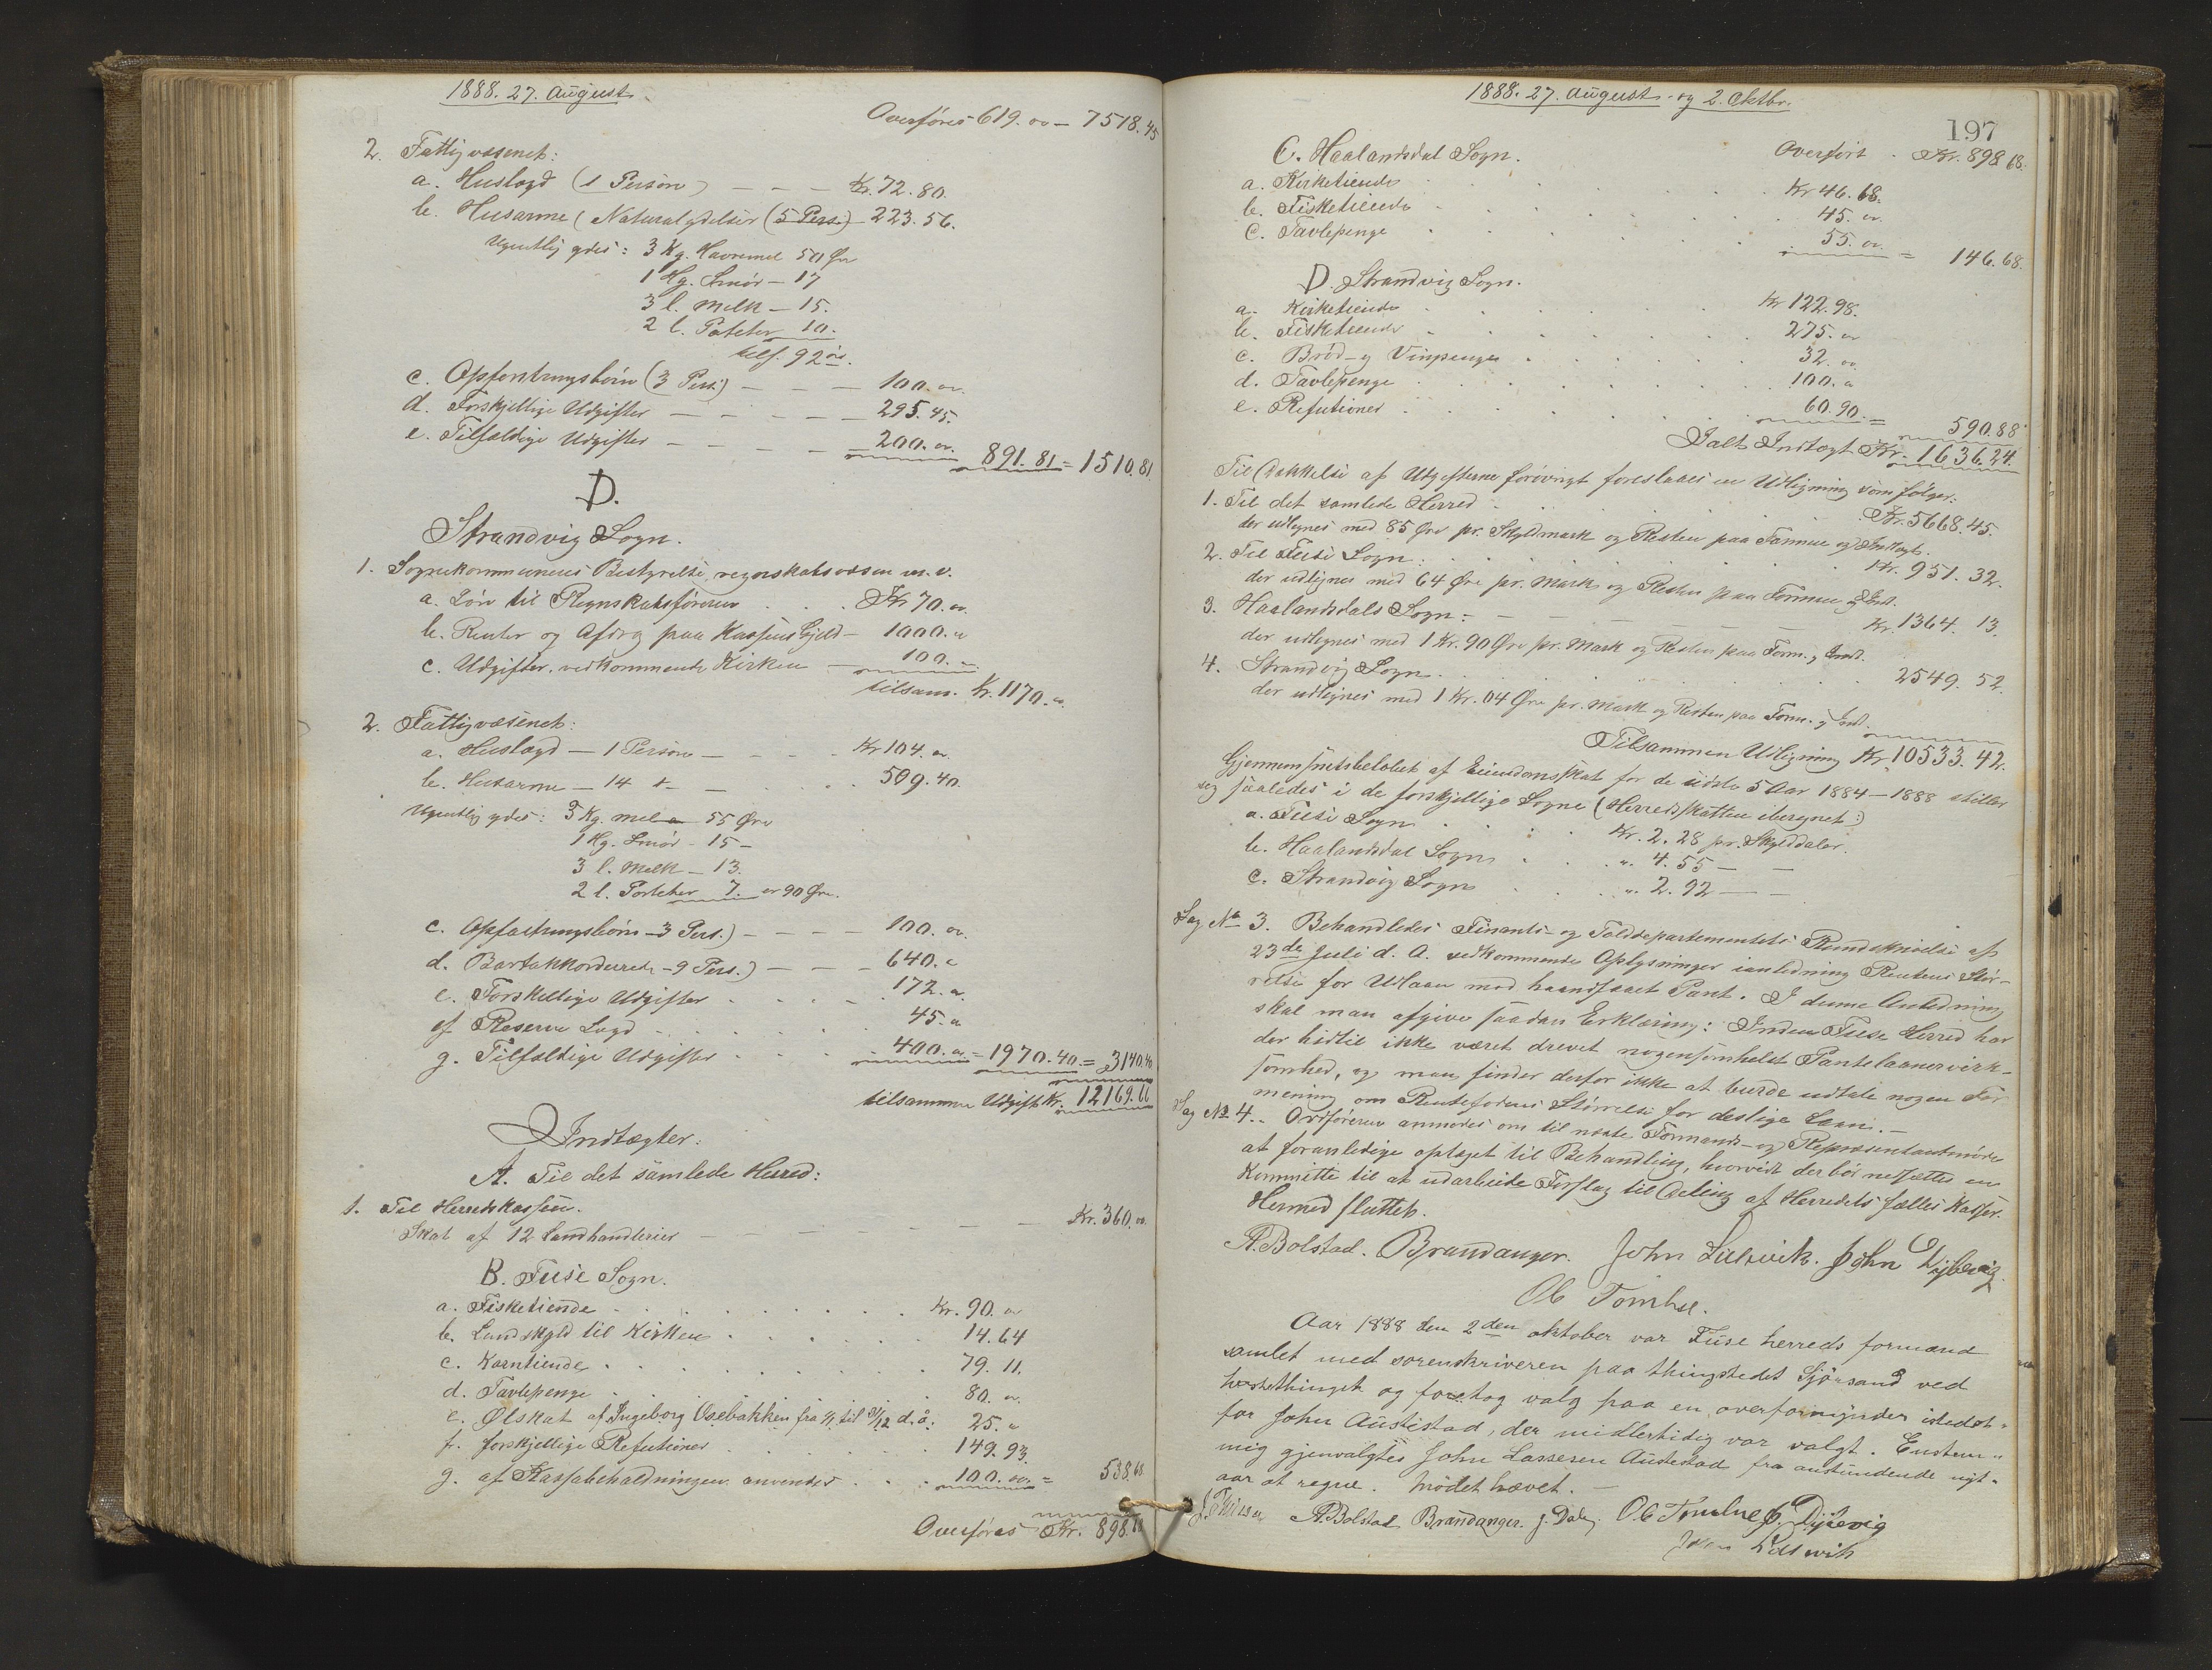 1888. 27. August.
Overføres 619. oo – 7518.45
2. Fattigvæsenet:
a. Huslægd (1 Person) – – – Kr. 72.80.
b. Husarme (Naturalydelser (5 Pers.) – 223.56.
Ugentlig ydes: 3 Kg. Havremel 50 Øre
1 Hg. Smør – 17
3 l. Melk – 15.
2 l. Poteter 10.
tils. 92 ør.
c. Opfostringsbørn (3 Pers.) – – – 100. oo.
d. Forskjellige Udgifter – – – – 295.45.
e. Tilfældige Udgifter – – – – 200. oo. 891.81 = 1510.81
D.
Strandvig Sogn.
1. Sognekommunens Bestyrelse, regnskabsvæsen m.v.
a. Løn til Regnskabsføreren . . . Kr 70. oo.
b. Renter og Afdrag paa Kassens Gjeld – 1000. "
c. Udgifter vedkommende Kirken – 100. –
tilsam. Kr. 1170. oo.
2. Fattigvæsenet:
a. Huslægd – 1 Person – – – Kr 104. oo.
b. Husarme – 14 + – . . . 509.40.
Ugentlig ydes: 3 Kg. mel 55 Øre
1 Hg. Smør – 15 –
3 l. Melk – 13.
2 l. Porteter 7. er 90 Øre.
c. Opfostringsbørn – 3 Pers.) – – – – 100. oo.
d. Bortakkorderede – 9 Pers.) – – – 640. "
e. Forskellige Udgifter . . . . 172. "
f Reserve Lægd . . . . . . 45. "
g. Tilfældige Udgifter . . . . 400. oo = 1970.40. = 3140.40
tilsammen Udgift Kr. 12169.66
Indtægter:
A. Til det samlede Herred:
1. Til Herredskassen.
Skat af 12 Landhandlerier – – – – – – Kr. 360. oo.
B. Fuse Sogn.
a. Fisketiende . . . . . . . . Kr. 90. oo
b. Landskyld til Kirken . . . . . 14.64
c. Korntiende . . . . . . . . 79.11.
d. Tavlepenge . . . . . . . . 80. oo.
e. Ølskat af Ingeborg Osebakken fra 1/1 til 31/12 d. å. 25. "
f. forskjellige Refutioner . . . . . 149.93.
g. af Kassabeholdningen anvendes . . . 100. oo. = 538.68
Overføres Kr. 898.68
1888. 27. August og 2. Oktbr.
197
C. Haalandsdal Sogn. Overført . Kr. 898 68.
a. Kirketiende . . . . . . Kr 46.68.
b. Fisketiende . . . . . . 45. oo.
c. Tavlepenge . . . . . . 55. oo. = 146.68.
D. Strandvig Sogn.
a. Kirketiende . . . . . . Kr 122.98.
b. Fisketiende . . . . . . 275. oo
c. Brød- og Vinpenge . . . . . 32. oo
d. Tavlepenge . . . . . . 100. "
e. Refutioner . . . . . . 60.90. = 590.88
Ialt Indtægt Kr. 1636.24.
Til Dækkelse af Udgifterne forøvrigt foreslaaes en Udligning som følger:
1. Til det samlede Herred . . . . . . Kr. 5668.45.
der udlignes med 85 Øre pr. Skyldmark og Resten paa Formue og Indtægt.
2. Til Fuse Sogn . . . . . . Kr. 951.32.
der udlignes med 64 Øre pr. Mark og Resten paa Formue og Indt.
3. Haalandsdals Sogn: – – – – – Kr. 1364.13.
der udlignes med 1 Kr. 90 Øre pr. Mark og Resten paa Form. og Indt.
4. Strandvig Sogn . . . . . . 2549.52.
der udlignes med 1 Kr. 04 Øre pr. Mark og Resten paa Form. og Ind.
Tilsammen Udligning Kr. 10533.42.
Gjennemsnitsbeløbet af Eiendomsskat for de sidste 5 Aar 1884–1888 stiller
sig saaledes i de forskjellige Sogne (Herredsskatten iberegnet:)
a. Fuse Sogn . . . . Kr. 2.28 pr. Skylddaler.
b. Haalandsdal Sogn . . . " 4.55 – –
c. Strandvig Sogn . . . " 2.92 – –
Sag No 3. Behandledes Finants- og Tolddepartementets Rundskrivelse af
23de Juli d. A. vedkommende Oplysninger ianledning Rentens Stør-
relse for Udlaan mod haandfaaet Pant. I denne Anledning
skal man afgive saadan Erklæring: Inden Fuse Herred har
der hidtil ikke været drevet nogensomhelst Pantelaanervirk-
somhed, og man finder derfor ikke at burde udtale nogen For
mening om Rentefodens Størrelse for deslige Laan. –
Sag No 4. Ordføreren anmodes om til næste Formands- og Repræsentantmøde
at foranledige optaget til Behandling, hvorvidt der bør nedsættes en
Kommitte til at udarbeide Forslag til Deling af Herredets fælles Kasser.
Hermed sluttet.
A. Bolstad. Brandanger. John Lidsvik. John Dysevig.
Ole Tombre.
Aar 1888 den 2den oktober var Fuse herreds formænd
samlet med sorenskriveren paa thingstedet Sjørsand ved
høstethinget og foretog valg paa en overformynder istedet-
for John Austestad, der midlertidig var valgt. Enstem-
mig gjenvalgtes John Lassesen Austestad fra anstundende nyt-
aar at regne. Mødet hævet. –
A. Bolstad Brandanger. J. Dale. Ole Tombre J. Dysevig
John Lidsvik